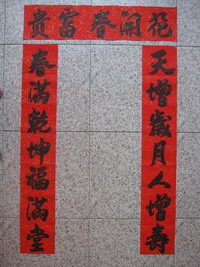 花開春富貴
天增歲月人增壽
春滿乾坤福滿堂